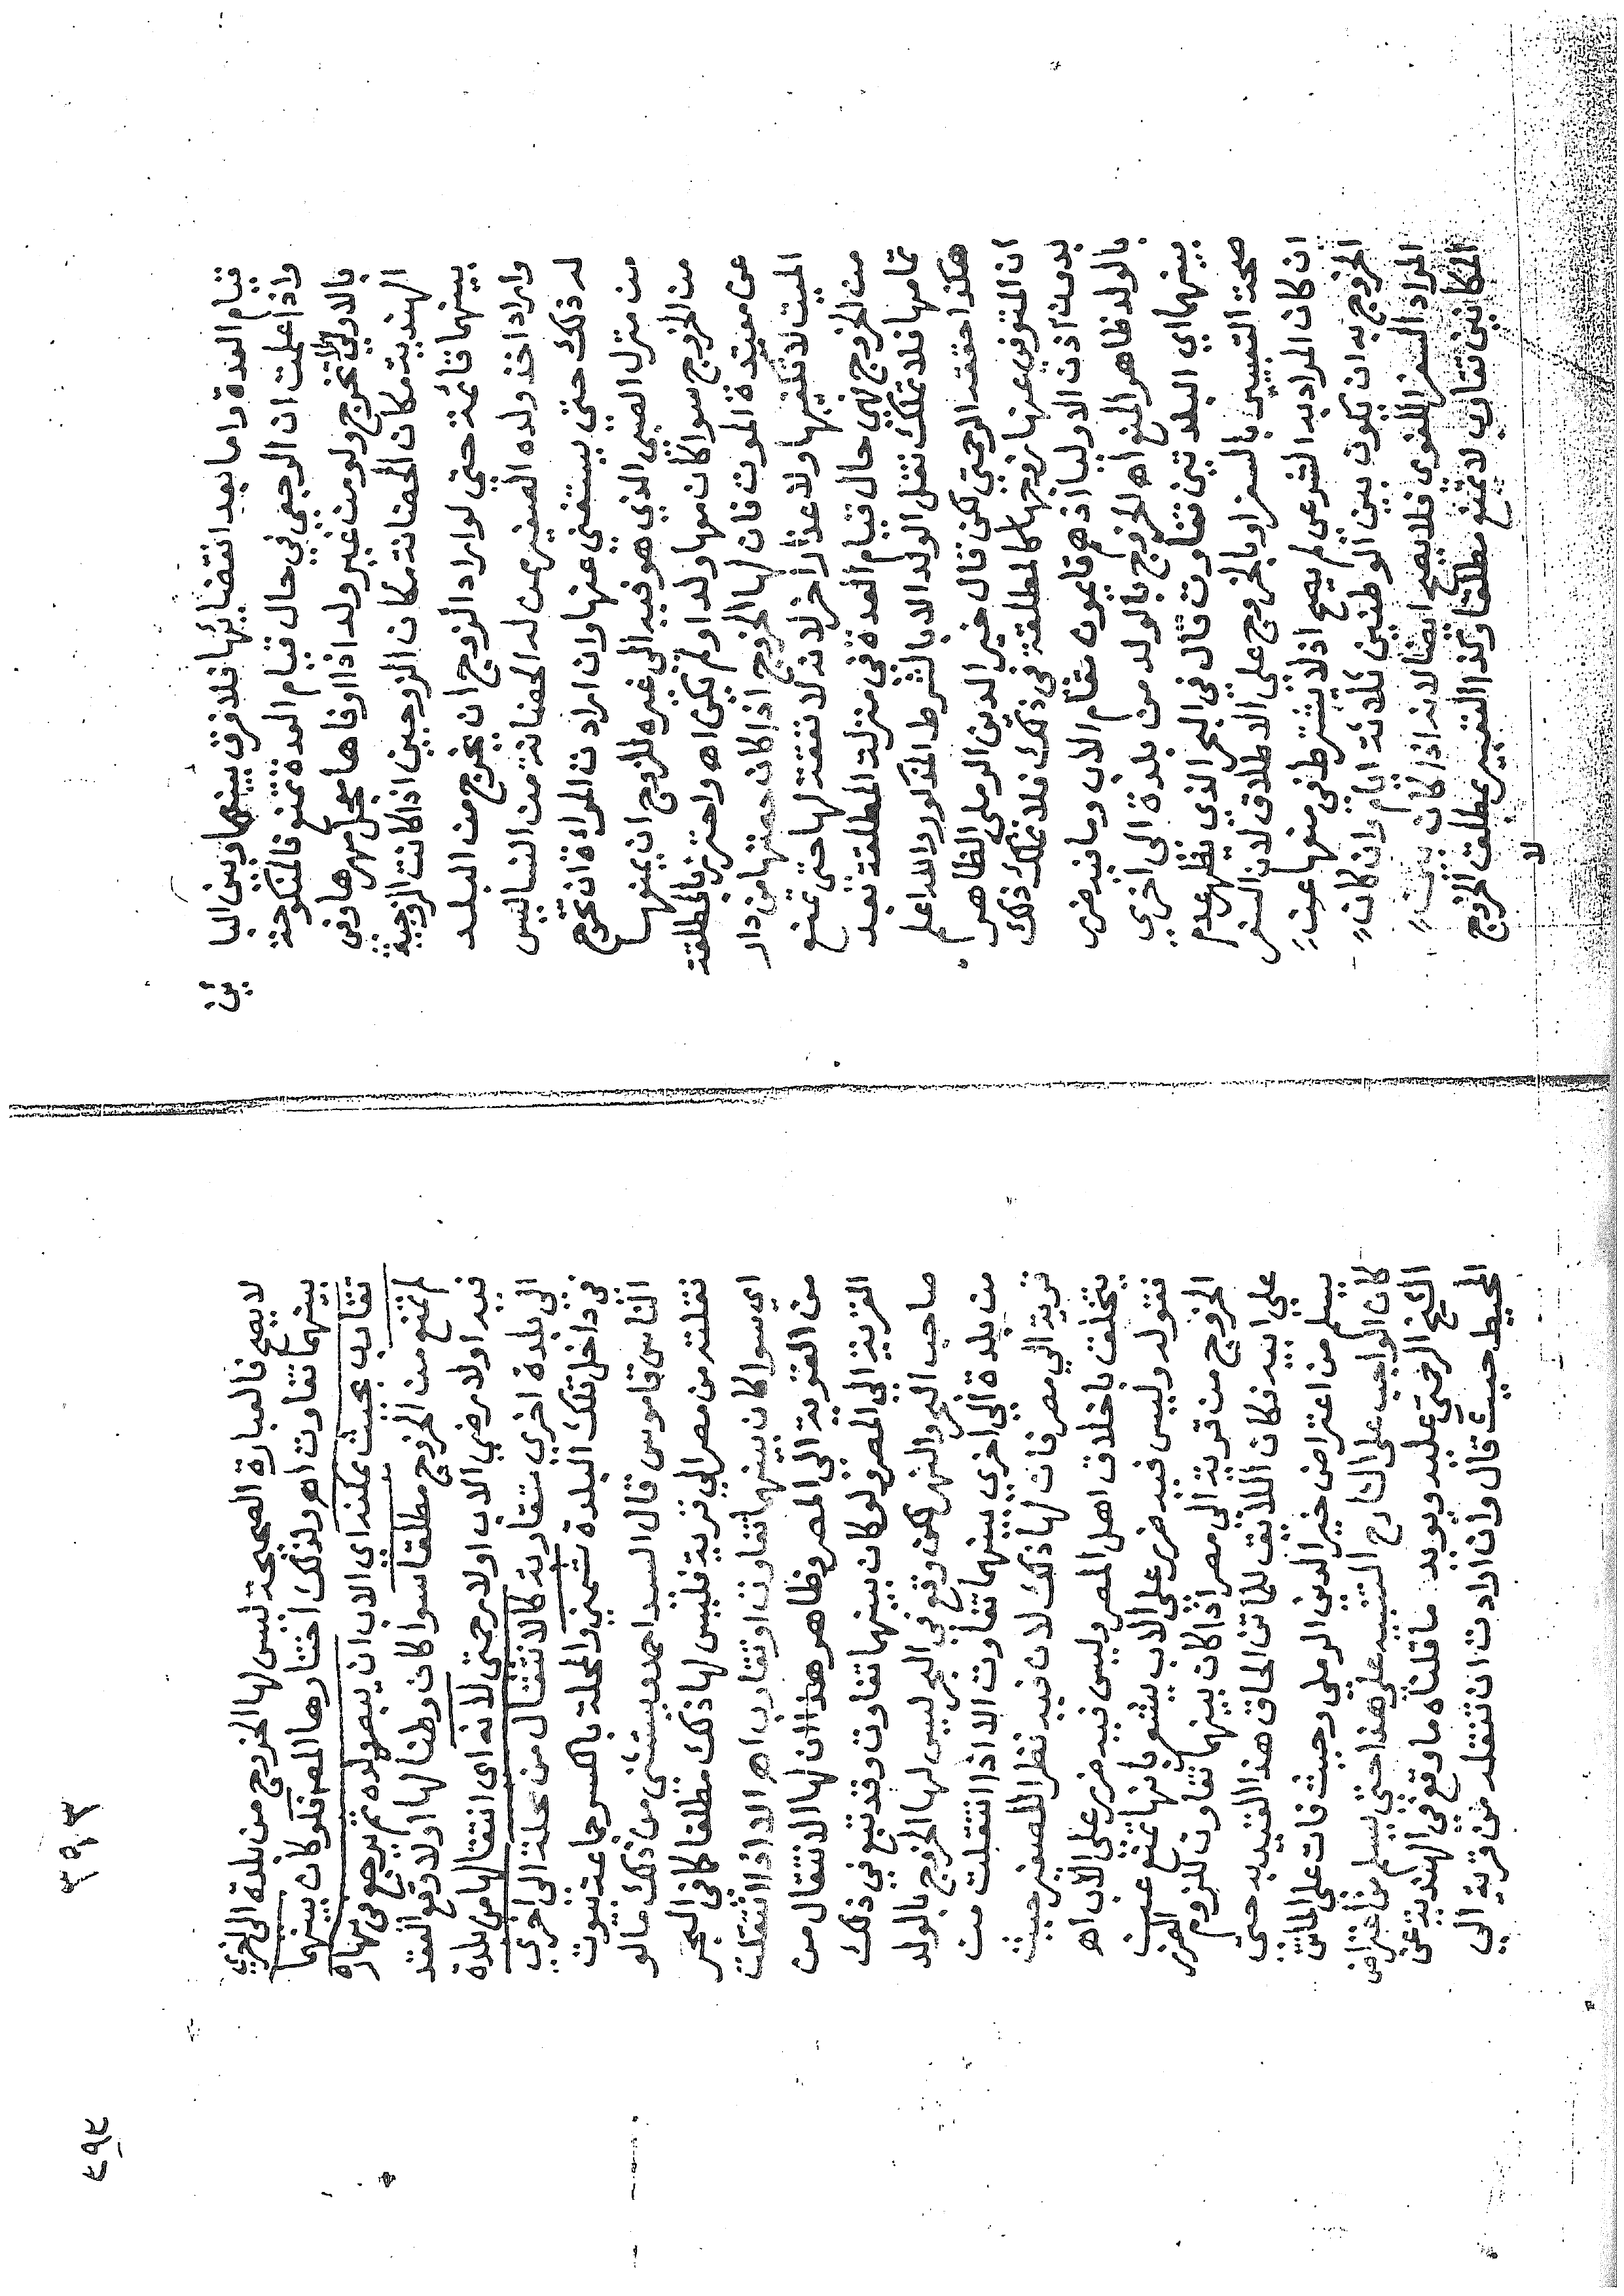 قيام العدة واما بعد انقضائها فلا فرق بينهما وبين البا ئن
واذا علمت ان الرجعي في حال قيام العدة تمنع فالمنكوحة
بالاولي لا تخرج ولو من غير ولد اذا اوفاها معجل مهرها وفي
الهندية مكان الحضانة مكان الزوجين اذا كانت الزوجية
بينهما قائمة حتي لو اراد الزوج ان يخرج من البلد
واراد اخذ ولده الصغير ممن له الحضانة من النسا ليس
له ذلك حتي يستغني عنها وان ارادت المراة ان تخرج
من منزل الصبي الذي هو فيه الي غيره للزوج ان يمنعها
من الخروج سوا كان معها ولد او لم يكن اه واحترز بالمطلقة
عن معتدة الموت فان لها الخروج اذا كان حصتها من دار
الميت لا تكفيها ولا عذر اخر لانه لا نفقة لها حتي تمنع
من الخروج فهي حال قيام العدة في منزلة المطلقة بعد
تمامها فلا تملك نقل الولد الا بالشرط المذكور والله اعلم
هكذا حققه الرحمتي لكن قال خير الدين الرملي الظاهر
ان المتوفي عنها زوجها كالمطلقة في ذلك فلا تملك ذلك
بدون اذن الاوليا اذ هم قايمون مقام الاب وما فيه ضرر
بالولد ظاهر المنع اه الخروج بالولد من بلدة الى اخري
بينهما اي البلدتين تفاوت قال في البحر الذي يظهر عدم
صحة التعبير بالسفر او بالخروج علي الاطلاق لان السفر
ان كان المراد به الشرعي لم يصح اذ لا يشترط في منعها عن
الخروج به ان يكون بين الوطنين ثلاثة ايام وان كان
المراد السفر اللغوي فلا يصح ايضا لانه اذا كان بين
المكانين تقارب لا تمنع مطلقا وكذا التعبير بمطلق الخروج
لا
٣٩٣
لا يصح فالعبارة الصحيحة ليس لها الخروج من بلدة الى اخري
بينهما تفاوت اه ولذلك اختارها المص فلو كان بينهما
تقارب بحيث يمكنه اي الاب ان يبصر ولده ثم يرجع في نهاره
لم تمنع من الخروج مطلقا سوا كان وطنا لها او لا وقع العقد
فيه او لا رضي الاب او لا رحمتي لانه اي انتقالها من بلدة
الي بلدة اخري متقاربة كالانتقال من محلة الى اخري
في داخل تلك البلدة شمني والمحلة بالكسر جماعة بيوت
الناس قاموس قال السيد احمد ويستثني من ذلك ما لو
نقلته من مصر الي قرية فليس لها ذلك مطلقا كما في البحر
اي سوا كان بينهما تفاوت او تقارب اه الا اذا انتقلت
من القرية الى المصر وظاهر هذا ان لها الانتقال من
القرية الي المصر ولو كان بينهما تفاوت وقد تبع في ذلك
صاحب البحر والنهر لكن وقع في البحر ليس لها الخروج بالولد
من بلدة الي اخري بينهما تفاوت الا اذا انتقلت من
قرية الي مصر فان لها ذلك لان فيه نظرا للصغير حيث
يتخلق باخلاق اهل المصر وليس فيه ضرر علي الاب اه
فقوله وليس فيه ضرر علي الاب يشعر بانها تمنع عن
الخروج من قرية الى مصر اذا كان بينهما تفاوت للزوم الضرر
علي ابيه فكان اللائق للماتن الحاق هذا القيد به حتى
يسلم من اعتراض خير الدين الرملي وحيث فات علي الماتن
كان الواجب علي الشارح التنبيه علي هذا حتي يسلم من اعتراض
الشيخ الرحمتي عليه ويويد ما قلناه ما وقع في الهندية عن
المحيط حيث قال وان ارادت ان تنقله من قرية الي
٤٩٤